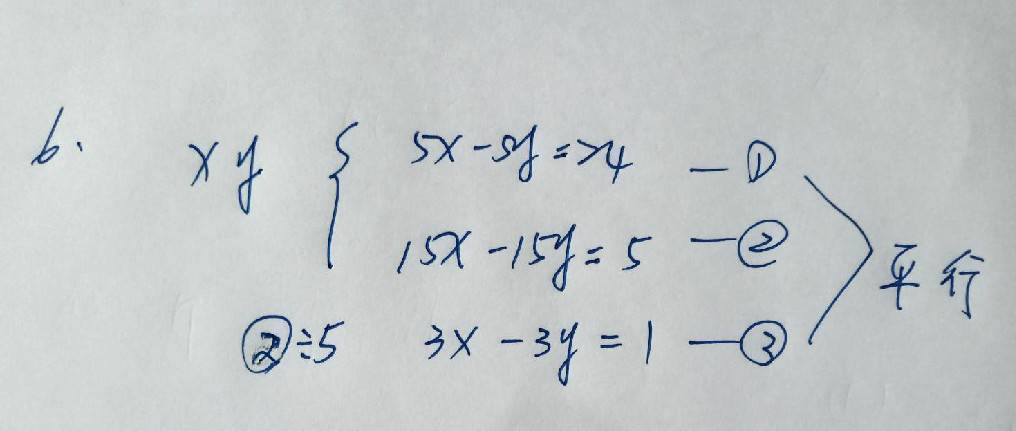 6. xy { 5x-5y=24 —①
15x-15y=5 —②
②÷5 3x-3y=1 —③
平行